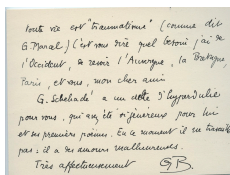 toute vie est "traumatisme" (comme dit
G. Marcel) C'est vous dire quel besoin j'ai de
l'Occident, de revoir l'Auvergne, la Bretagne,
Paris, et vous, mon cher ami
G. Schehadé a un d'hyperdulie
pour vous, qui avez été si généreux pour lui
et ses premiers poèmes. En ce moment il ne travaille
pas : il a des amours malheureuses.
Très affectueusement GB.